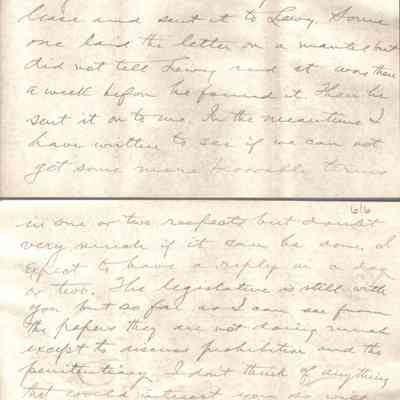 lease and sent it to Lawy. Some
one laid the letter on a mantel but
did not tell Lawy and it was there
a week before he found it. Then he
sent it on to me. In the meantime I
have written to see if we can not
get some more favorable terms
6/6
in one or two respects but doubt
very much if it can be done. I
expect to have a reply in a day
or two. The legislature is still with
you but so far as I can see from
the papers they are not doing much
except to discuss prohibition and the
penitentiary. I don't think of anything
that would interest you so will